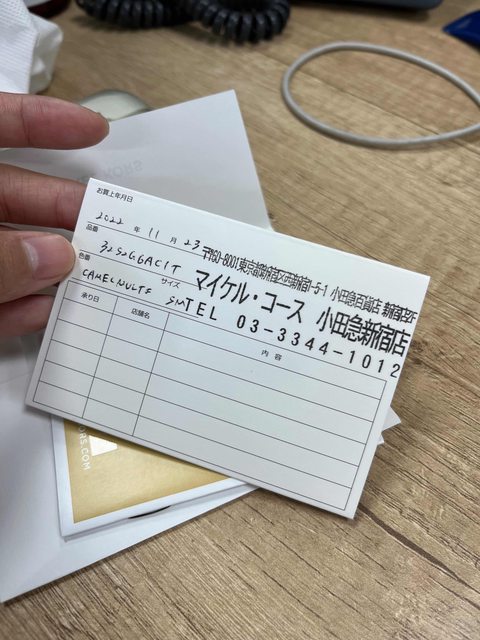 お買上年月日
2022 年 11 月 23
品番
32S2G6AC1T
〒160-8001東京都新宿区西新宿1-5-1 小田急百貨店
色番
CAMEL MULTI
サイズ
SM
マイケル・コース 小田急新宿店
TEL 03-3344-1012
承り日
店舗名
内容
ORS.COM
KORS